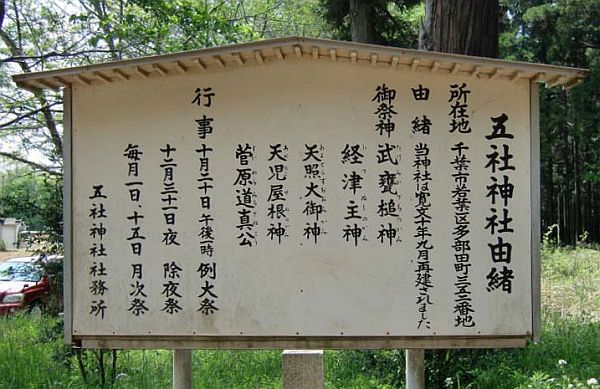 五社神社由緒
所在地 千葉市若葉区多部田町三五二番地
由緒 当神社は寛文十年九月再建されました
御祭神 武甕槌神
経津主神
天照大御神
天児屋根神
菅原道真公
行事 十月二十日 午後一時 例大祭
十二月三十一日夜 除夜祭
毎月一日、十五日 月次祭
五社神社社務所